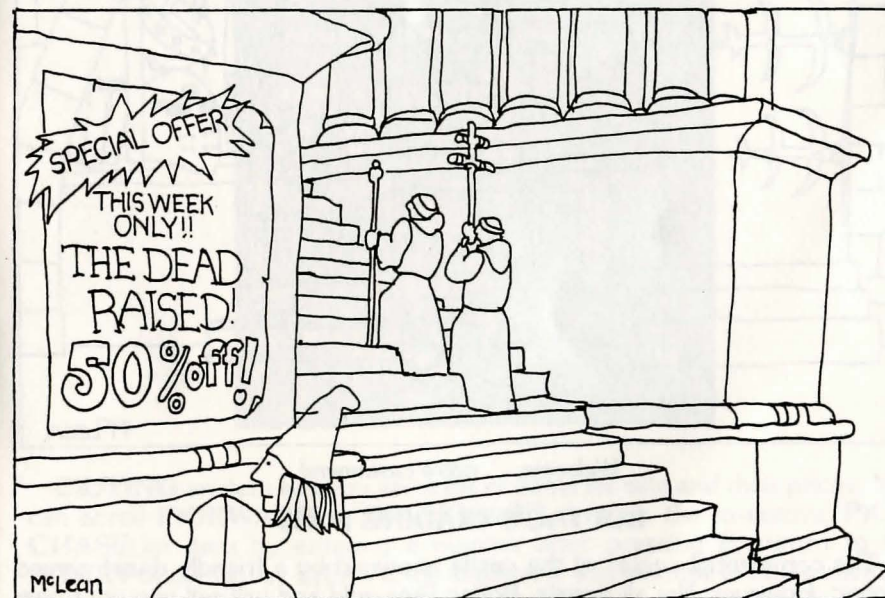 SPECIAL OFFER
THIS WEEK
ONLY!!
THE DEAD
RAISED!
50%off!
McLean